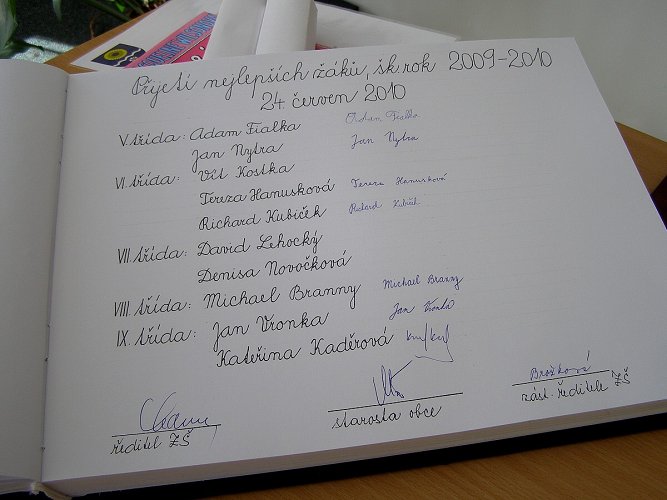 Přijetí nejlepších žáků, šk. rok 2009-2010
24. červen 2010
V. třída: Adam Fialka Adam Fialka
Jan Nytra Jan Nytra
VI. třída: Vít Kostka
Tereza Hanusková Tereza Hanusková
Richard Kubíček Richard Kubíček
VII. třída: David Lehocký
Denisa Novočková
VIII. třída: Michael Branny Michael Branny
IX. třída: Jan Vronka Jan Vronka
Kateřina Kaděrová
ředitel ZŠ
starosta obce
Brožková
zást. ředitele ZŠ